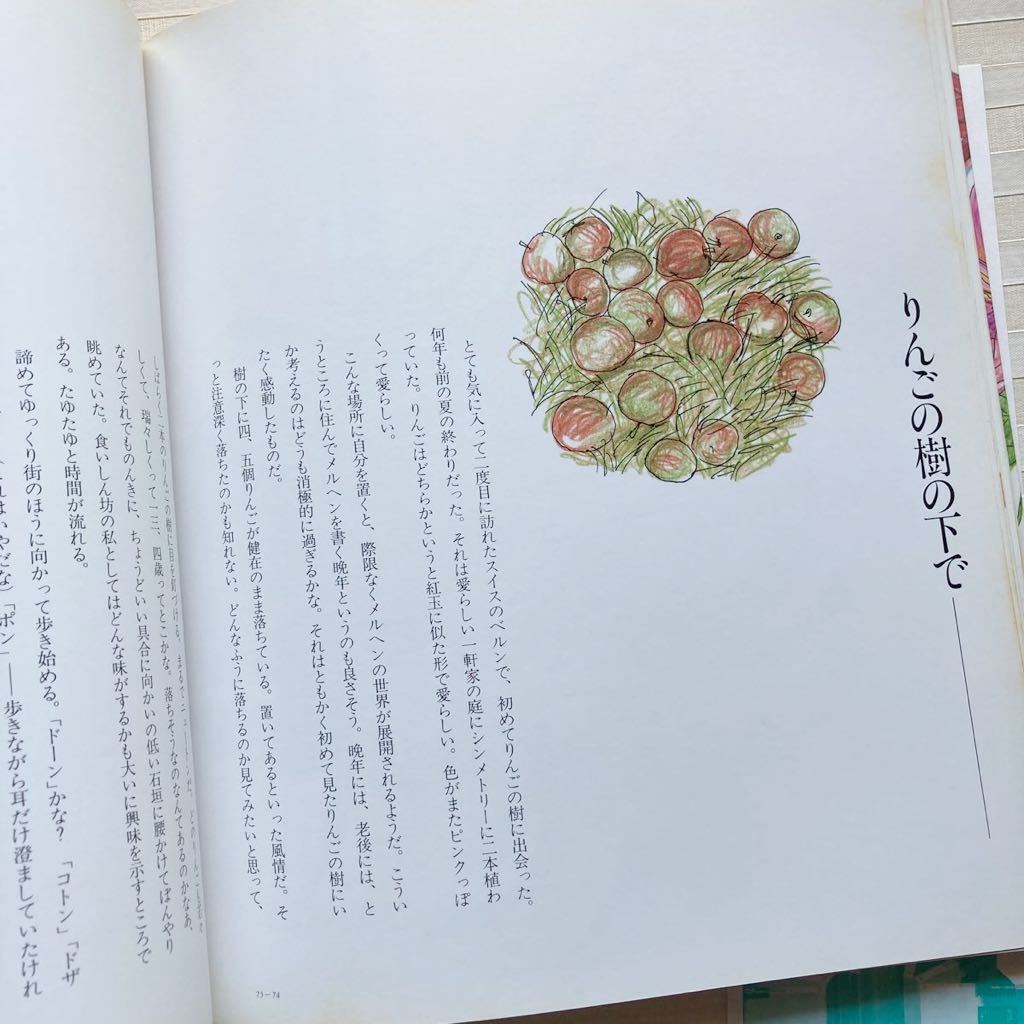 りんごの樹の下で──
とても気に入って二度目に訪れたスイスのベルンで、初めてりんごの樹に出会った。
何年も前の夏の終わりだった。それは愛らしい一軒家の庭にシンメトリーに二本植わ
っていた。りんごはどちらかというと紅玉に似た形で愛らしい。色がまたピンクっぽ
くって愛らしい。
こんな場所に自分を置くと、際限なくメルヘンの世界が展開されるようだ。こうい
うところに住んでメルヘンを書く晩年というのも良さそう。晩年には、老後には、と
か考えるのはどうも消極的に過ぎるかな。それはともかく初めて見たりんごの樹にい
たく感動したものだ。
樹の下に四、五個りんごが健在のまま落ちている。置いてあるといった風情だ。そ
っと注意深く落ちたのかも知れない。どんなふうに落ちるのか見てみたいと思って、
しばらく二本のりんごの樹に目を釘づける。まるでニュートンだ。どのりんごも若々
しくて、瑞々しくって二三、四歳ってとこかな。落ちそうなのなんてあるのかなあ、
なんてそれでものんきに、ちょうどいい具合に向かいの低い石垣に腰かけてぼんやり
眺めていた。食いしん坊の私としてはどんな味がするかも大いに興味を示すところで
ある。たゆたゆと時間が流れる。
諦めてゆっくり街のほうに向かって歩き始める。「ドーン」かな？「コトン」「ドザ
はいやだな）「ポン」──歩きながら耳だけ澄ましていたけれ
73－74